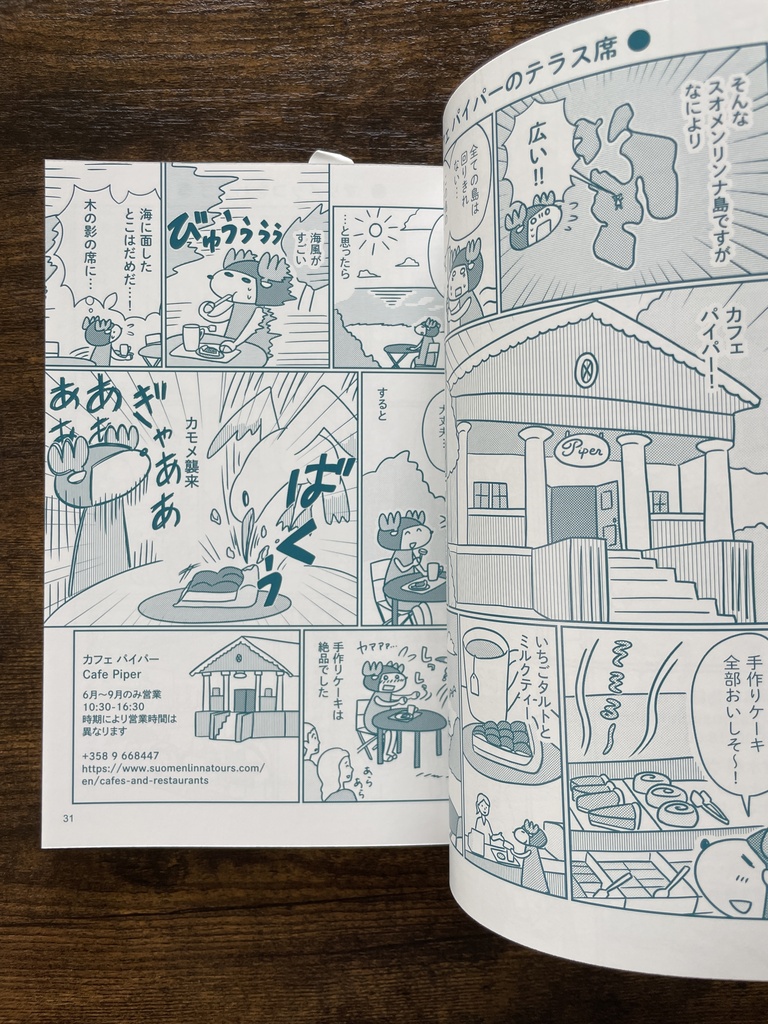 パイパーのテラス席●
そんな
スオメンリンナ島ですが
なにより
広い!!
全ての島は
回りきれ
ない…
カフェ
パイパー!
Piper
手作りケーキ
全部おいしそ〜!
いちごタルトと
ミルクティー
…と思ったら
海風が
すごい
びゅうぅぅぅ
海に面した
とこはだめだ…!
木の影の席に…
すると
大丈夫…
ばくぅ
カモメ襲来
ぎゃあああ
あぁ
あぁ
ヤァァァ…
手作りケーキは
絶品でした
あら
あら
カフェ パイパー
Cafe Piper
6月〜9月のみ営業
10:30-16:30
時期により営業時間は
異なります
+358 9 668447
https://www.suomenlinnatours.com/
en/cafes-and-restaurants
31